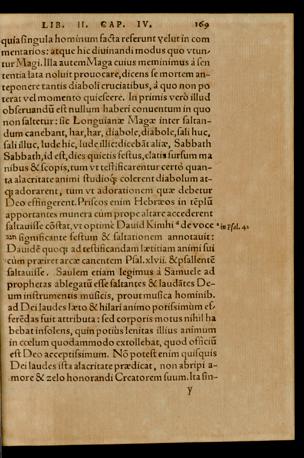 LIB. II. CAP. IV. 169
quia singula hominum facta referunt velut in com
mentarios: atque hic diuinandi modus quo vtun-
tur Magi. Illa autem Maga cuius meminimus à sen
tentia lata noluit prouocare, dicens se mortem an-
teponere tantis diaboli cruciatibus, à quo non po
terat vel momento quiescere. In primis verò illud
obseruandū est nullum haberi conuentum in quo
non saltetur: sic Longuianæ Magæ inter saltan-
dum canebant, har, har, diabole, diabole, sali huc,
sali illuc, lude hic, lude illic: dicebāt aliæ, Sabbath
Sabbath, id est, dies quietis festus, elatis sursum ma
nibus & scopis, tum vt testificarentur certò quan-
ta alacritate animi studioq́; colerent diabolum at-
q́; adorarent, tum vt adorationem quæ debetur
Deo effingerent. Priscos enim Hebræos in tēplū
apportantes munera cùm prope altare accederent
saltauisse cōstat, vt optimè Dauid Kimhi de voce
significante festum & saltationem annotauit:
Dauidē quoq́; ad testificandam lætitiam animi sui
cùm præiret arcæ canentem Psal. xlvii. & psallentē
saltauisse. Saulem etiam legimus à Samuele ad
prophetas ablegatū esse saltantes & laudātes De-
um instrumentis musicis, prout musica hominib.
ad Dei laudes læto & hilari animo potissimùm ef-
ferēdas fuit attributa: sed corporis motus nihil ha
bebat insolens, quin potiùs lenitas illius animum
in cœlum quodammodo extollebat, quod officiū
est Deo acceptissimum. Nō potest enim quisquis
Dei laudes ista alacritate prædicat, non abripi a-
more & zelo honorandi Creatorem suum. Ita sin-
y
in Psal. 42